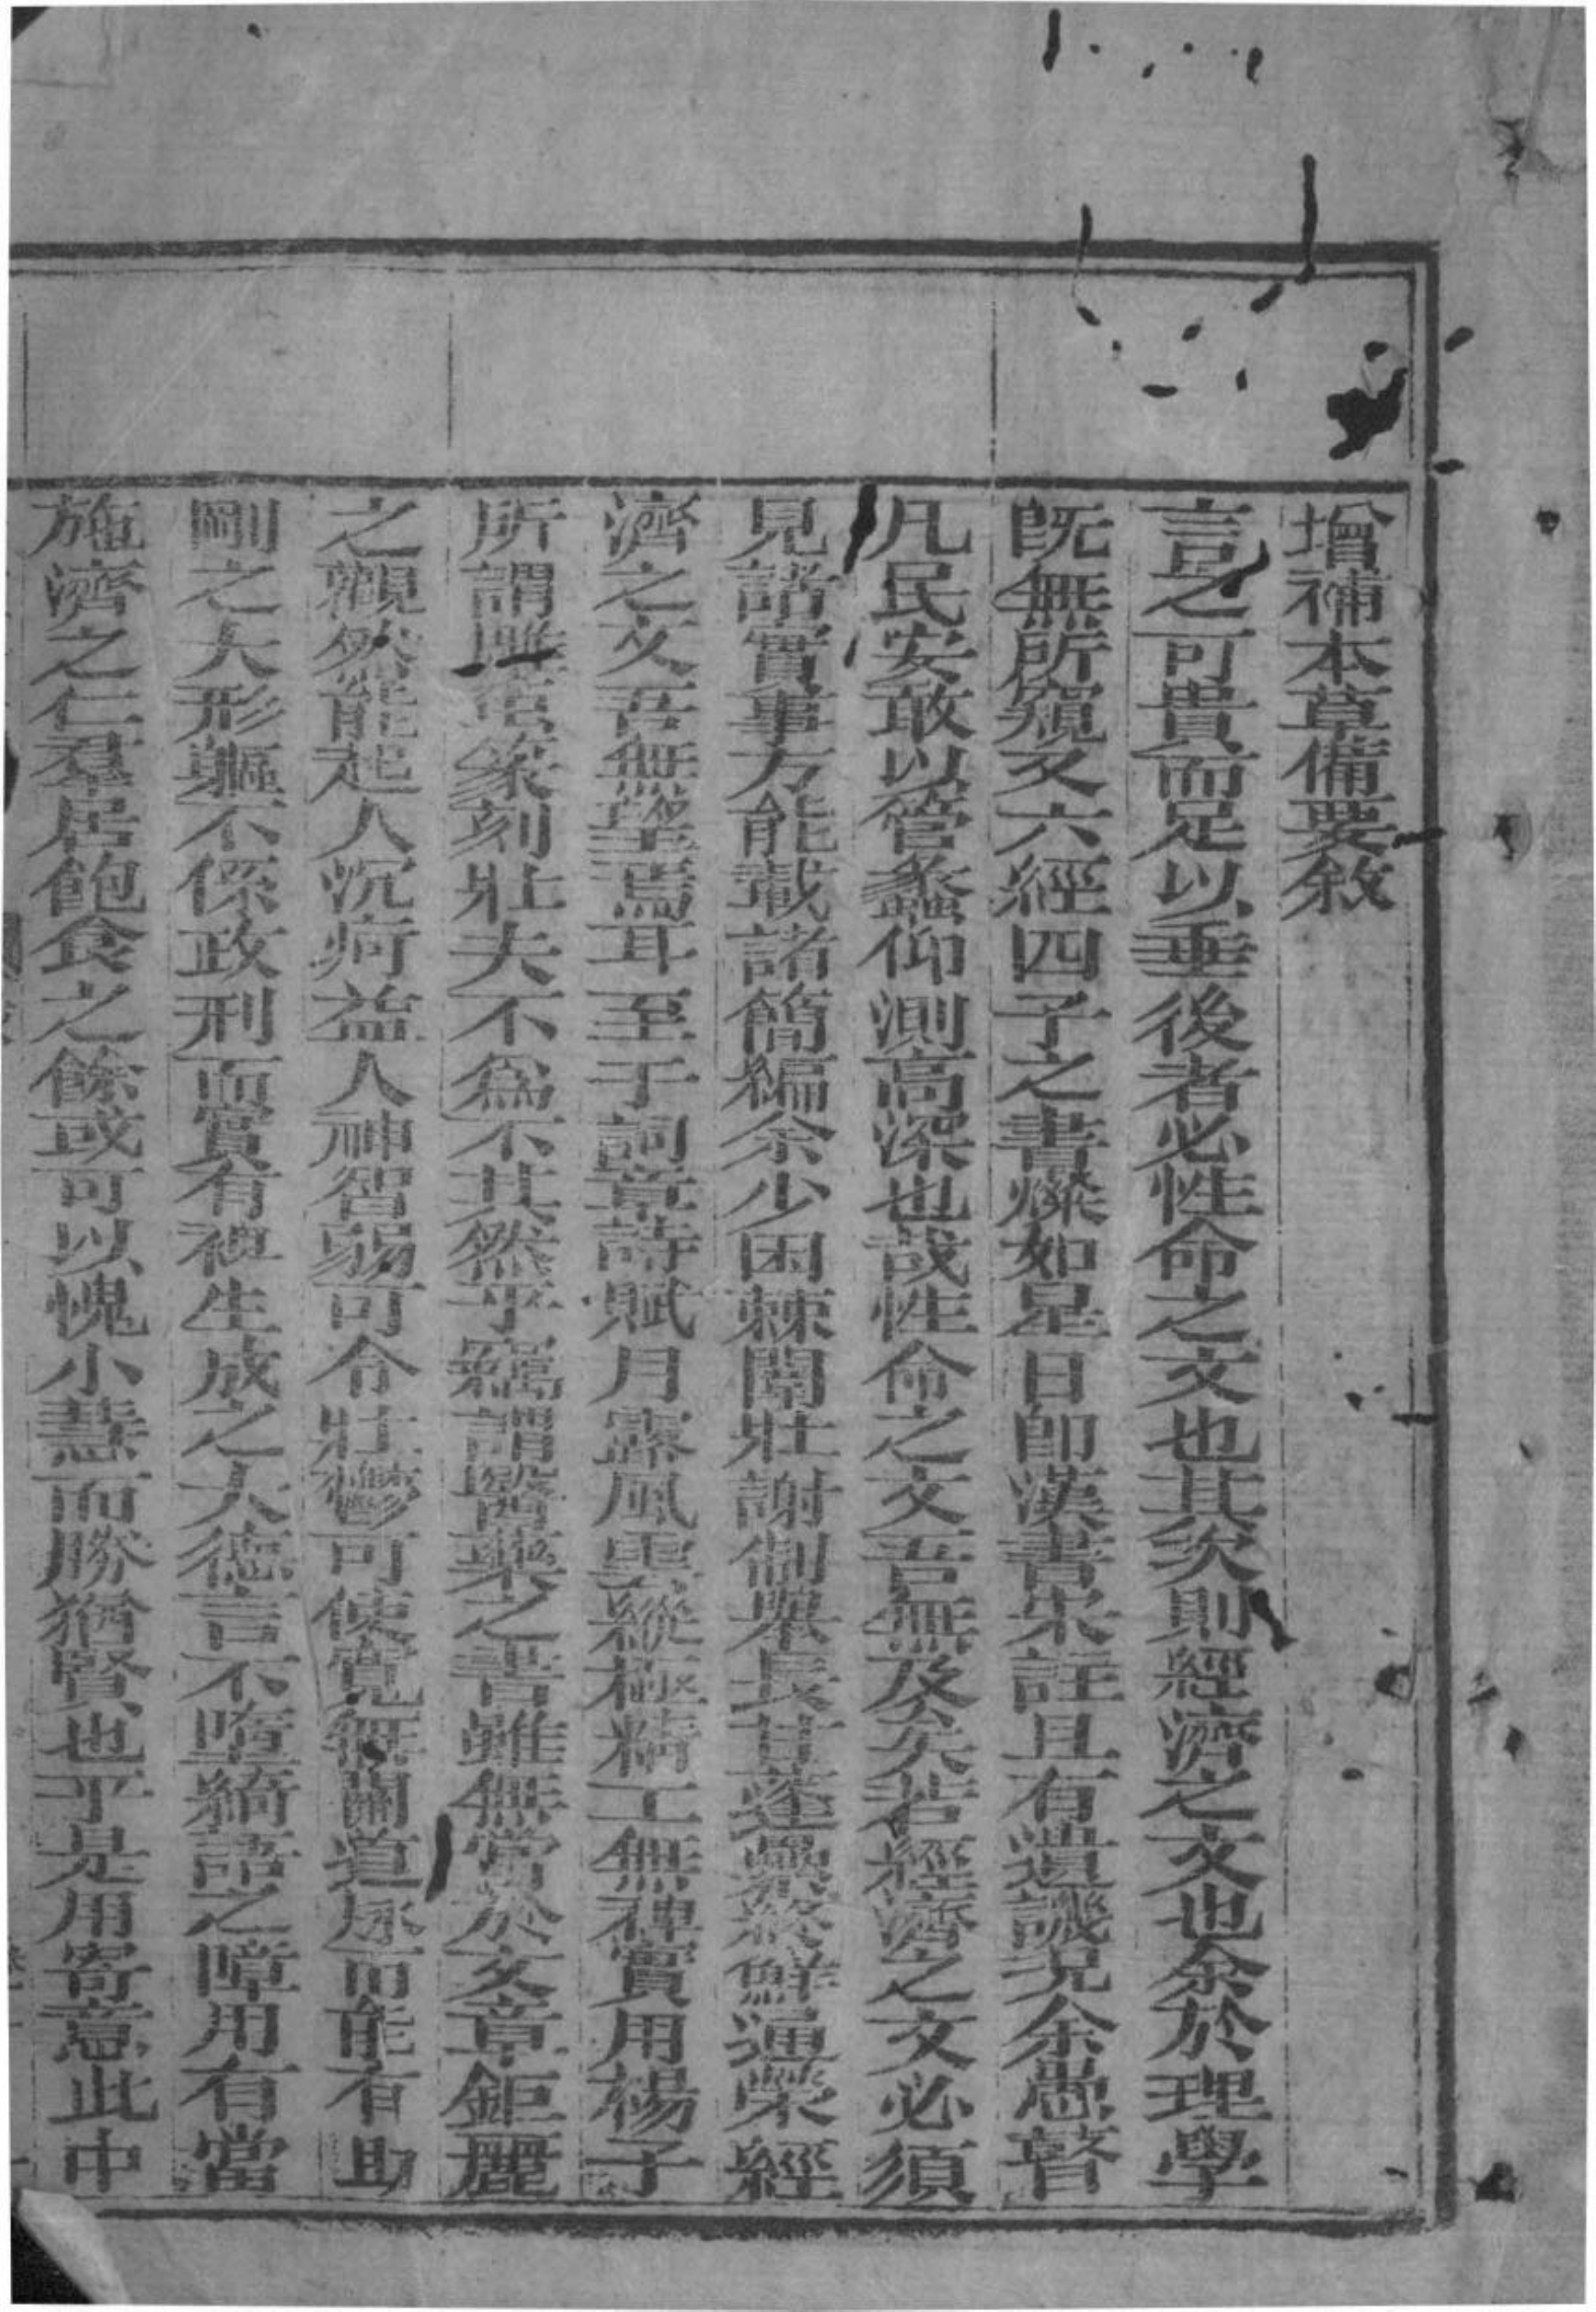 增補本草備要敘
言之可貴而足以垂後者必性命之文也其次則經濟之文也余於理學
旣無所窺又六經四子之書燦如星日卽漢書宋註且有遺譏况余愚瞽
凡民安敢以管蠡仰測高深也哉性命之文吾無及矣若經濟之文必須
見諸實事方能載諸簡編余少困棘闈壯謝制舉長甘蓬藋終鮮通榮經
濟之文吾無望焉耳至于詞章詩賦月露風雲縱極精工無裨實用楊子
所謂雕蟲篆刻壯夫不為不其然乎竊謂醫藥之書雖無當於文章鉅麗
之觀然能起人沉疴益人神智弱可令壯鬱可使寬無關道脉而能有助
剛之大形軀不係政刑而實有裨生成之大德言不墮綺語之障用有當
施濟之仁羣居飽食之餘或可以愧小慧而勝猶賢也乎是用寄意此中